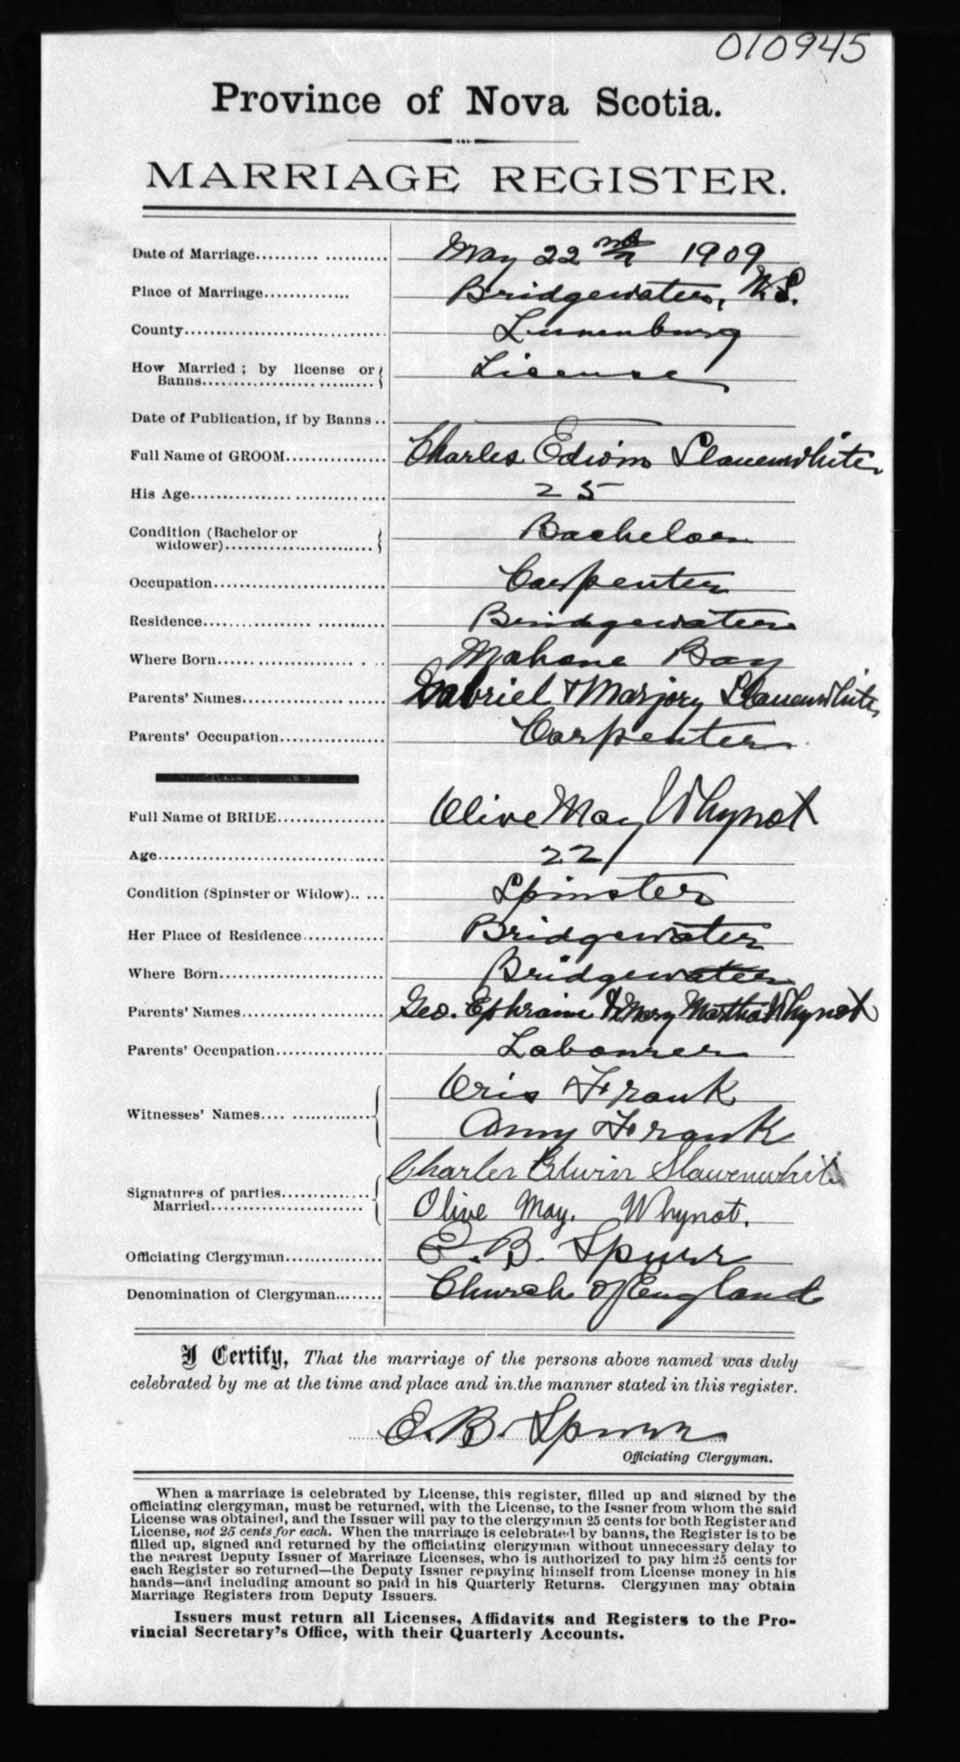 010945
Province of Nova Scotia.
MARRIAGE REGISTER.
Date of Marriage.................... May 22nd 1909
Place of Marriage.............. Bridgewater, N.S.
County................................ Lunenburg
How Married ; by license or
Banns............................ License
Date of Publication, if by Banns ..
Full Name of GROOM................ Charles Edwin Slauenwhite
His Age............................... 25
Condition (Bachelor or
widower)........................... Bachelor
Occupation........................... Carpenter
Residence............................. Bridgewater
Where Born........................ Mahone Bay
Parents' Names..................... Gabriel & Marjory Slauenwhite
Parents' Occupation................ Carpenter
Full Name of BRIDE................ Olive May Whynot
Age................................... 22
Condition (Spinster or Widow)..... Spinster
Her Place of Residence............ Bridgewater
Where Born......................... Bridgewater
Parents' Names..................... Geo. Ephraim & Mary Martha Whynot
Parents' Occupation................ Labourer
Witnesses' Names.................. Oris Frank
Amy Frank
Signatures of parties.............. Charles Edwin Slawenwhite
Married............................ Olive May. Whynot.
Officiating Clergyman.............. E. B. Spurr
Denomination of Clergyman........ Church of England
I Certify, That the marriage of the persons above named was duly
celebrated by me at the time and place and in the manner stated in this register.
E. B. Spurr
Officiating Clergyman.
When a marriage is celebrated by License, this register, filled up and signed by the
officiating clergyman, must be returned, with the License, to the Issuer from whom the said
License was obtained, and the Issuer will pay to the clergyman 25 cents for both Register and
License, not 25 cents for each. When the marriage is celebrated by banns, the Register is to be
filled up, signed and returned by the officiating clergyman without unnecessary delay to
the nearest Deputy Issuer of Marriage Licenses, who is authorized to pay him 25 cents for
each Register so returned—the Deputy Issuer repaying himself from License money in his
hands—and including amount so paid in his Quarterly Returns. Clergymen may obtain
Marriage Registers from Deputy Issuers.
Issuers must return all Licenses, Affidavits and Registers to the Pro-
vincial Secretary's Office, with their Quarterly Accounts.